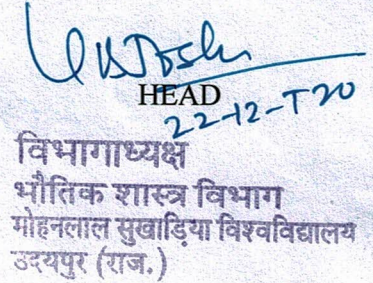 HEAD
22-12-
विभागाध्यक्ष
भौतिक शास्त्र विभाग
मोहनलाल सुखाड़िया विश्वविद्यालय
उदयपुर (राज.)